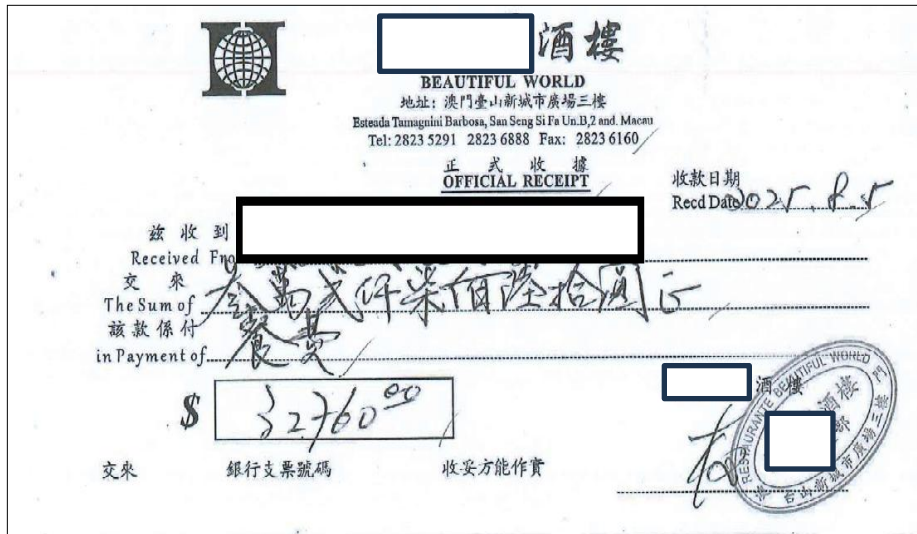 酒樓
BEAUTIFUL WORLD
地址：澳門臺山新城市廣場三樓
Esteada Tamagnini Barbosa, San Seng Si Fa Un.B,2 and. Macau
Tel: 2823 5291 2823 6888 Fax: 2823 6160
正式收據
OFFICIAL RECEIPT
收款日期
Recd Date 2025.8.5
茲收到
Received Fro
交來
The Sum of 叁萬弍仟柒佰陸拾圓正
該款係付
in Payment of 餐費
$ 32760.00
酒樓
RESTAURANTE BEAUTIFUL WORLD
酒樓
部
澳門台山新城市廣場三樓
交來 銀行支票號碼 收妥方能作實